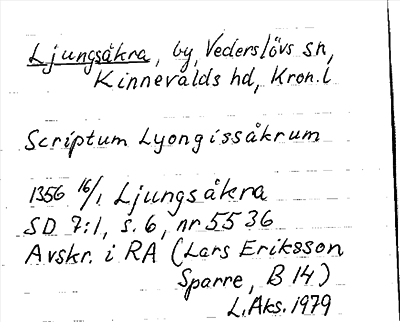 Ljungsåkra, by, Vederslövs sn,
Kinnevalds hd, Kron. l
Scriptum Lyongissåkrum
1356 16/1 Ljungsåkra
SD 7:1, s. 6, nr 5536
Avskr. i RA (Lars Eriksson
Sparre, B 14)
L. Aks. 1979